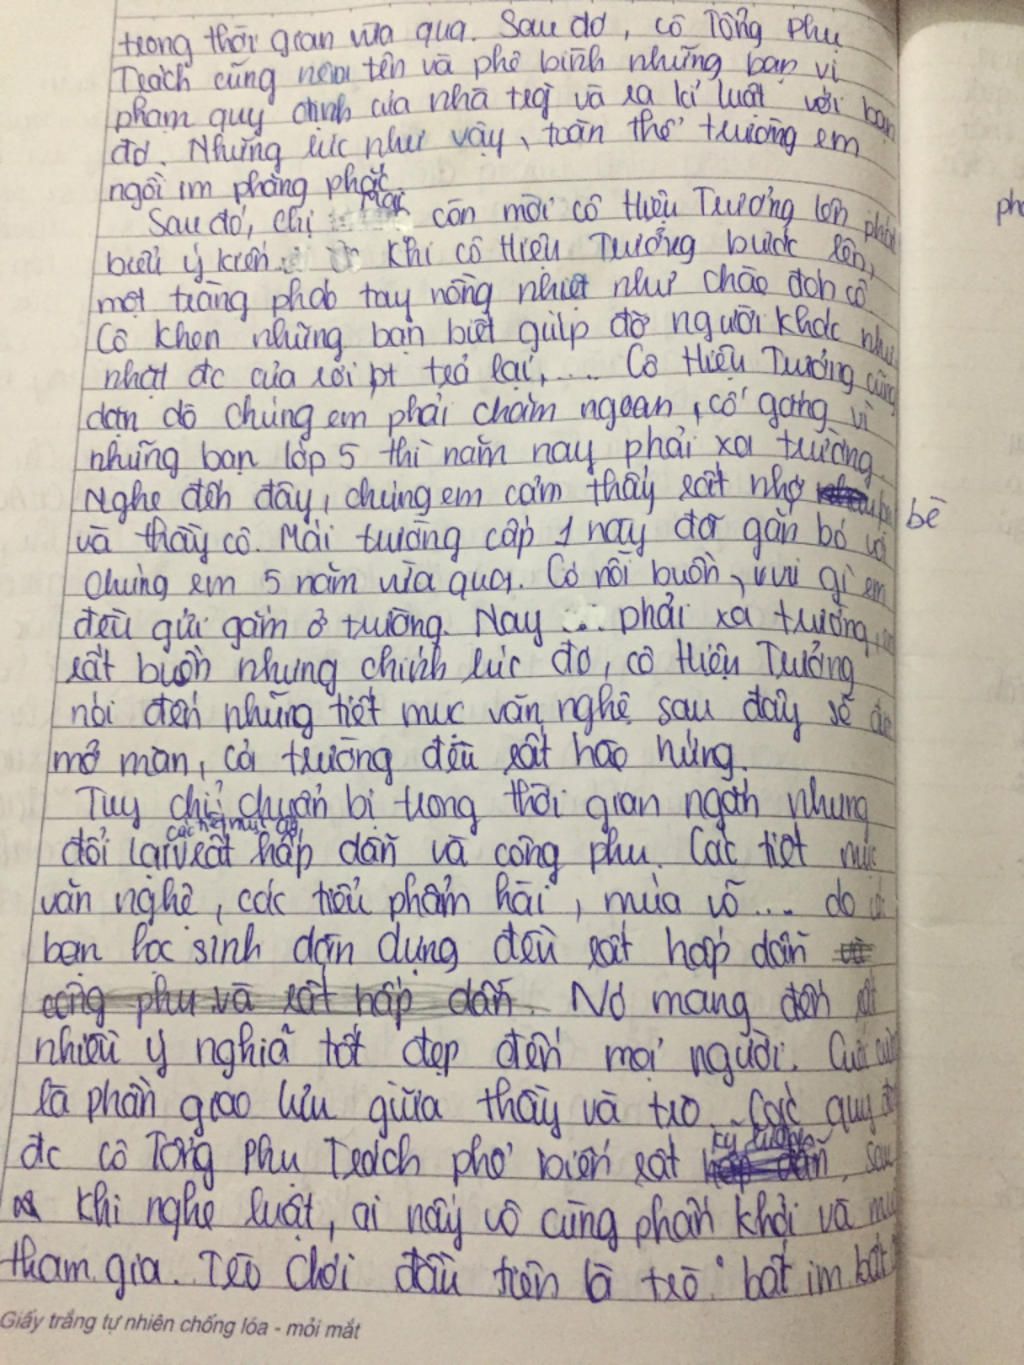 trong thời gian vừa qua. Sau đó, cô Tổng Phụ
Trách cũng nêu tên và phê bình những bạn vi
phạm quy định của nhà trg và ra kỉ luật với bạn
đó. Những lúc như vậy, toàn thể trường em
ngồi im phăng phắc
Sau đó, chị Mai còn mời cô Hiệu Trưởng lên phát
biểu ý kiến. Khi cô Hiệu Trưởng bước lên,
một tràng pháo tay nồng nhiệt như chào đón cô
Cô khen những bạn biết giúp đỡ người khác như
nhặt đc của rơi pt trả lại,... Cô Hiệu Trưởng cũng
dặn dò chúng em phải chăm ngoan, cố gắng vì
những bạn lớp 5 thì năm nay phải xa trường.
Nghe đến đây, chúng em cảm thấy rất nhớ bạn bè
và thầy cô. Mái trường cấp 1 này đã gắn bó với
chúng em 5 năm vừa qua. Có nỗi buồn, vui gì em
đều gửi gắm ở trường. Nay ... phải xa trường, em
rất buồn nhưng chính lúc đó, cô Hiệu Trưởng
nói đến những tiết mục văn nghệ sau đây sẽ đc
mở màn, cả trường đều rất hào hứng.
Tuy chỉ chuẩn bị trong thời gian ngắn nhưng
các tiết mục đó
đổi lại rất hấp dẫn và công phu. Các tiết mục
văn nghệ, các tiểu phẩm hài, múa võ... do các
bạn học sinh dàn dựng đều rất hấp dẫn và
công phu và rất hấp dẫn. Nó mang đến rất
nhiều ý nghĩa tốt đẹp đến mọi người. Cuối cùng
là phần giao lưu giữa thầy và trò. Các quy định
đc cô Tổng Phụ Trách phổ biến rất kỹ lưỡng, sau
khi nghe luật, ai nấy vô cùng phấn khởi và muốn
tham gia. Trò chơi đầu tiên là trò "bất im bất
Giấy trắng tự nhiên chống lóa - mỏi mắt